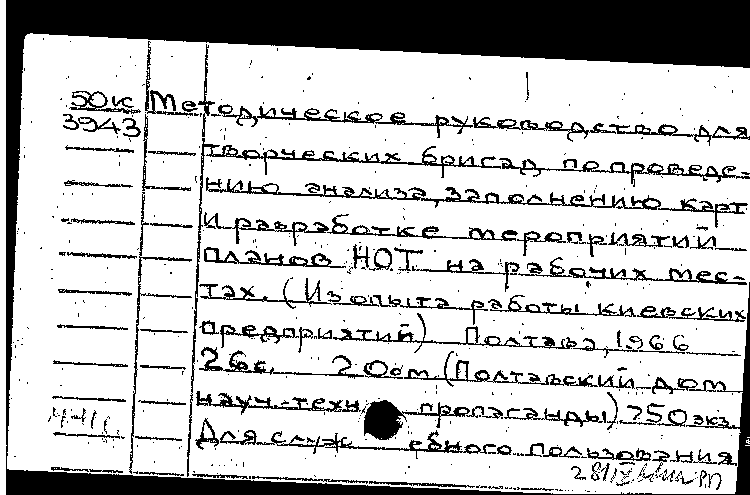 50к Методическое руководство для
3943
творческих бригад по проведе-
нию анализа, заполнению карт
и разработке мероприятий
планов НОТ на рабочих мес-
тах. (Из опыта работы киевских
предприятий) Полтава, 1966
26с. 20см (Полтавский дом
науч.-техн пропаганды) 750экз.
Для служ ебного пользования